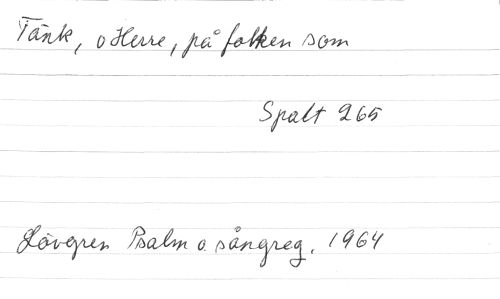 Tänk, o Herre, på folken som
Spalt 265
Lövgren Psalm o. sångreg. 1964